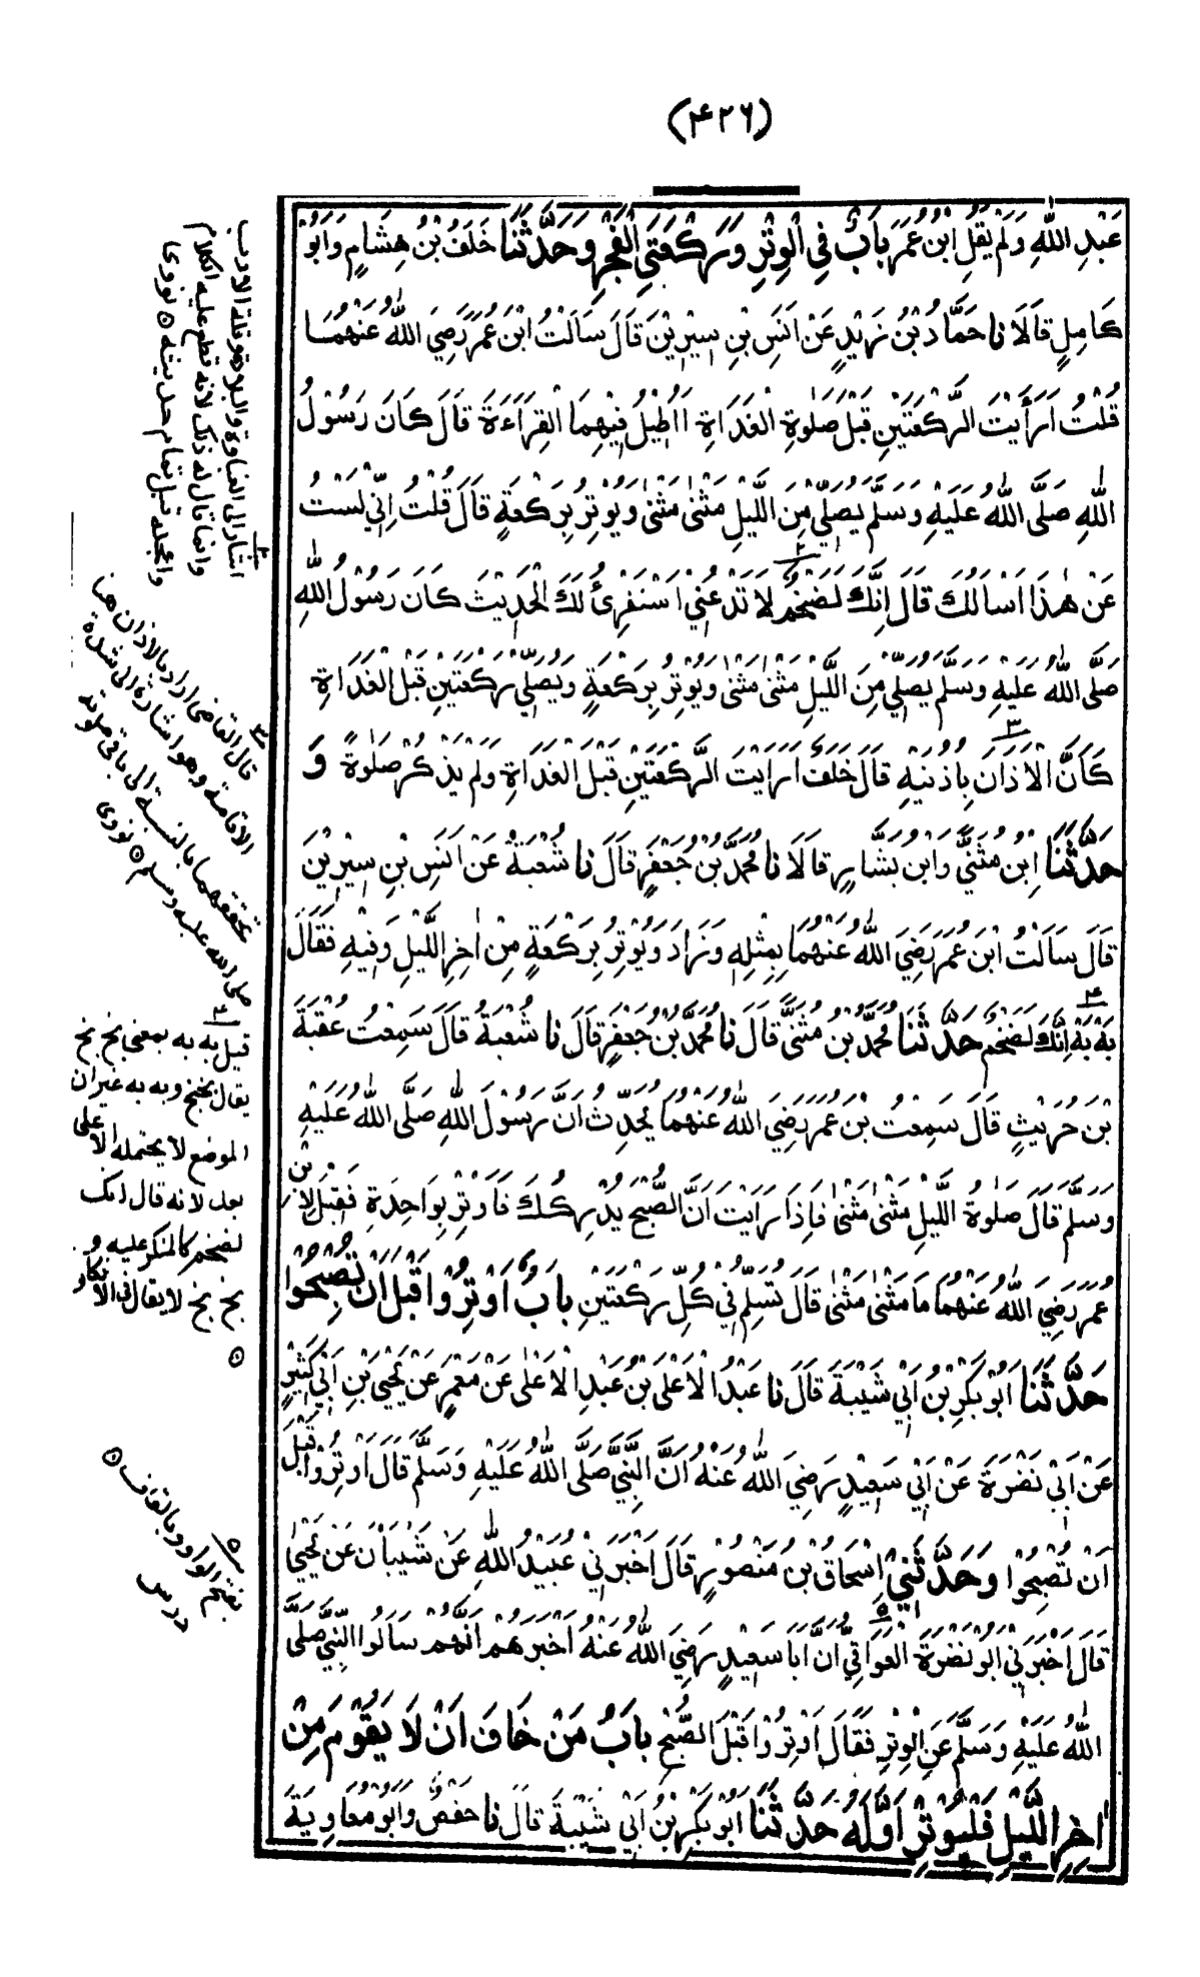 (۴۲۶)
عَبْدِ اللّٰهِ وَلَمْ يَقُلِ ابْنُ عُمَرَ بَابٌ فِي الْوِتْرِ وَرَكْعَتَيِ الْفَجْرِ وَحَدَّثَنَا خَلَفُ بْنُ هِشَامٍ وَاَبُوْ
كَامِلٍ قَالَا نَا حَمَّادُ بْنُ زَيْدٍ عَنْ اَنَسِ بْنِ سِيْرِيْنَ قَالَ سَاَلْتُ ابْنَ عُمَرَ رَضِيَ اللّٰهُ عَنْهُمَا
قُلْتُ اَرَاَيْتَ الرَّكْعَتَيْنِ قَبْلَ صَلٰوةِ الْغَدَاةِ اَاُطِيْلُ فِيْهِمَا الْقِرَاءَةَ قَالَ كَانَ رَسُوْلُ
اللّٰهِ صَلَّى اللّٰهُ عَلَيْهِ وَسَلَّمَ يُصَلِّيْ مِنَ اللَّيْلِ مَثْنٰى مَثْنٰى وَيُوْتِرُ بِرَكْعَةٍ قَالَ قُلْتُ اِنِّيْ لَسْتُ
عَنْ هٰذَا اَسْاَلُكَ قَالَ اِنَّكَ لَضَخْمٌ ٢ اَلَا تَدَعُنِيْ اَسْتَقْرِئُ لَكَ الْحَدِيْثَ كَانَ رَسُوْلُ اللّٰهِ
صَلَّى اللّٰهُ عَلَيْهِ وَسَلَّمَ يُصَلِّيْ مِنَ اللَّيْلِ مَثْنٰى مَثْنٰى وَيُوْتِرُ بِرَكْعَةٍ وَيُصَلِّيْ رَكْعَتَيْنِ قَبْلَ الْغَدَاةِ
كَاَنَّ الْاَذَانَ ٣ بِاُذُنَيْهِ قَالَ خَلَفٌ اَرَاَيْتَ الرَّكْعَتَيْنِ قَبْلَ الْغَدَاةِ وَلَمْ يَذْكُرْ صَلٰوةً وَ
حَدَّثَنَا ابْنُ مُثَنًّى وَابْنُ بَشَّارٍ قَالَا نَا مُحَمَّدُ بْنُ جَعْفَرٍ قَالَ نَا شُعْبَةُ عَنْ اَنَسِ بْنِ سِيْرِيْنَ
قَالَ سَاَلْتُ ابْنَ عُمَرَ رَضِيَ اللّٰهُ عَنْهُمَا بِمِثْلِهٖ وَزَادَ وَيُوْتِرُ بِرَكْعَةٍ مِنْ اٰخِرِ اللَّيْلِ وَفِيْهِ فَقَالَ
بَهْ بَهْ ۴ اِنَّكَ لَضَخْمٌ حَدَّثَنَا مُحَمَّدُ بْنُ مُثَنًّى قَالَ نَا مُحَمَّدُ بْنُ جَعْفَرٍ قَالَ نَا شُعْبَةُ قَالَ سَمِعْتُ عُقْبَةَ
بْنَ حُرَيْثٍ قَالَ سَمِعْتُ بْنَ عُمَرَ رَضِيَ اللّٰهُ عَنْهُمَا يُحَدِّثُ اَنَّ رَسُوْلَ اللّٰهِ صَلَّى اللّٰهُ عَلَيْهِ
وَسَلَّمَ قَالَ صَلٰوةُ اللَّيْلِ مَثْنٰى مَثْنٰى فَاِذَا رَاَيْتَ اَنَّ الصُّبْحَ يُدْرِكُكَ فَاَوْتِرْ بِوَاحِدَةٍ فَقِيْلَ لِابْنِ
عُمَرَ رَضِيَ اللّٰهُ عَنْهُمَا مَا مَثْنٰى مَثْنٰى قَالَ تُسَلِّمُ فِيْ كُلِّ رَكْعَتَيْنِ بَابُ اَوْتِرُوْا قَبْلَ اَنْ تُصْبِحُوْا
حَدَّثَنَا اَبُوْ بَكْرِ بْنُ اَبِيْ شَيْبَةَ قَالَ نَا عَبْدُ الْاَعْلَى بْنُ عَبْدِ الْاَعْلٰى عَنْ مَعْمَرٍ عَنْ يَحْيَى بْنِ اَبِيْ كَثِيْرٍ
عَنْ اَبِيْ نَضْرَةَ عَنْ اَبِيْ سَعِيْدٍ رَضِيَ اللّٰهُ عَنْهُ اَنَّ النَّبِيَّ صَلَّى اللّٰهُ عَلَيْهِ وَسَلَّمَ قَالَ اَوْتِرُوْا قَبْلَ
اَنْ تُصْبِحُوْا وَحَدَّثَنِيْ اِسْحَاقُ بْنُ مَنْصُوْرٍ قَالَ اَخْبَرَنِيْ عُبَيْدُ اللّٰهِ عَنْ شَيْبَانَ عَنْ يَحْيٰى
قَالَ اَخْبَرَنِيْ اَبُوْ نَضْرَةَ الْعَوَقِيُّ ٥ اَنَّ اَبَا سَعِيْدٍ رَضِيَ اللّٰهُ عَنْهُ اَخْبَرَهُمْ اَنَّهُمْ سَاَلُوا النَّبِيَّ صَلَّى
اللّٰهُ عَلَيْهِ وَسَلَّمَ عَنِ الْوِتْرِ فَقَالَ اَوْتِرُوْا قَبْلَ الصُّبْحِ بَابُ مَنْ خَافَ اَنْ لَا يَقُوْمَ مِنْ
اٰخِرِ اللَّيْلِ فَلْيُوْتِرْ اَوَّلَهٗ حَدَّثَنَا اَبُوْ بَكْرِ بْنُ اَبِيْ شَيْبَةَ قَالَ نَا حَفْصٌ وَاَبُوْ مُعَاوِيَةَ
٢ اشار الى الغباوة والبلادة وقلة الادب
وانما قال له ذلك لانه قطع عليه الكلام
واعجله قبل تمام حديثه ٥ نووى
٣ قال القاضى اراد بالاذان هنا
الاقامة وهو اشارة الى شدة
تخفيفهما بالنسبة الى باقى صلوته
صلى الله عليه وسلم ٥ نووى
۴ قيل به به بمعنى بخ بخ
يقال بخ بخ وبه به غير ان
الموضع لا يحتمله الا على
بعد لانه قال انك
لضخم كالمنكر عليه و
بخ بخ لا يقال فى الانكار
٥
٥ بفتح الواو وبالقاف ٥